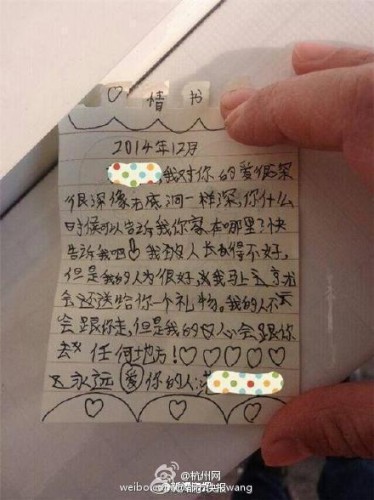 ♡ 情 书
2014年12月
,我对你的爱很深
很深像无底洞一样深,你什么
时候可以告诉我你家在哪里?快
告诉我吧!我本人长得不好,
但是我的人为很好,我马上
会还送给你一个礼物。我的人不
会跟你走,但是我的心会跟你
去 任何地方!♡♡♡♡♡
永远爱你的人:
@杭州网
weibo.